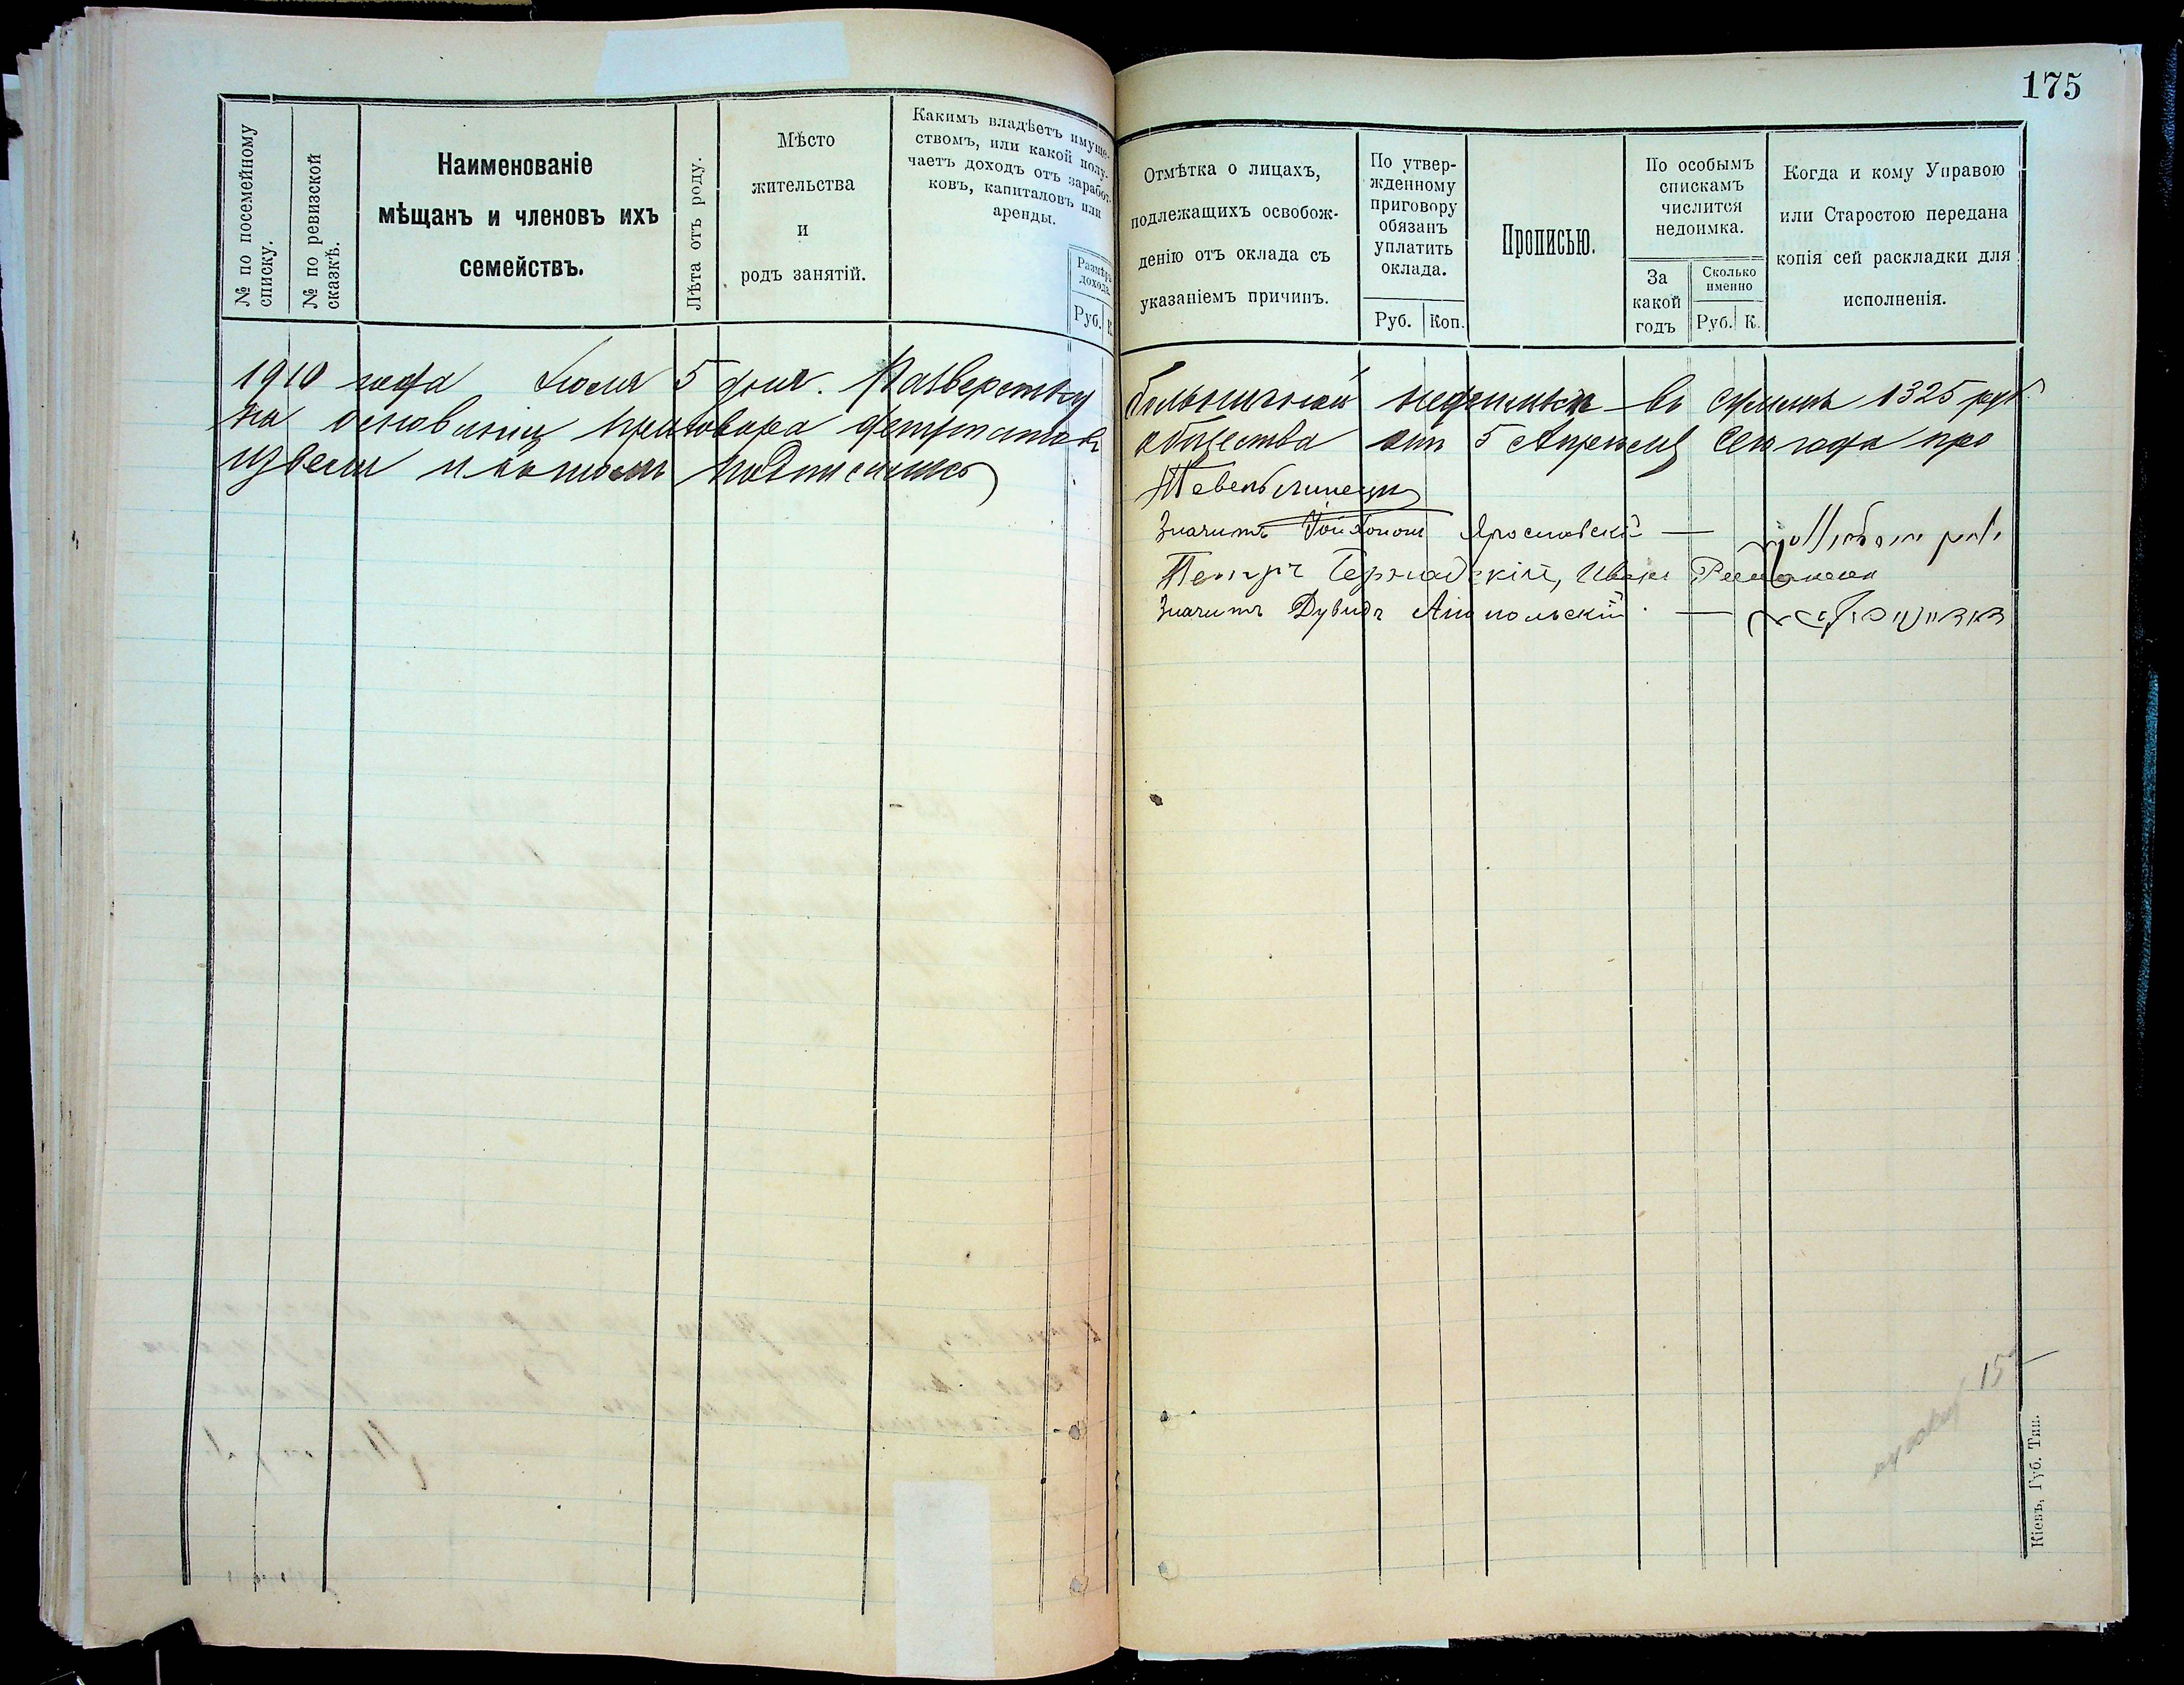 175
№ по посемейному списку.
№ по ревизской сказкѣ.
Наименованіе
мѣщанъ и членовъ ихъ
семействъ.
Лѣта отъ роду.
Мѣсто
жительства
и
родъ занятій.
Какимъ владѣетъ имуще-
ствомъ, или какой полу-
чаетъ доходъ отъ заработ-
ковъ, капиталовъ или
аренды.
Размѣръ
дохода.
Руб. К.
Отмѣтка о лицахъ,
подлежащихъ освобож-
денію отъ оклада съ
указаніемъ причинъ.
По утвер-
жденному
приговору
обязанъ
уплатить
оклада.
Руб. Коп.
Прописью.
По особымъ
спискамъ
числится
недоимка.
За
какой
годъ
Сколько
именно
Руб. К.
Когда и кому Управою
или Старостою передана
копія сей раскладки для
исполненія.
1910 года Іюля 5 дня. Разверстку больничной недоимки въ суммѣ 1325 руб.
на основаніи приговора депутатовъ общества отъ 5 Апрѣля сего года про
извели и въ томъ подписались
Значитъ Ярославскій —
Петръ
Значитъ Дувидъ —
15
Кіевъ, Губ. Тип.